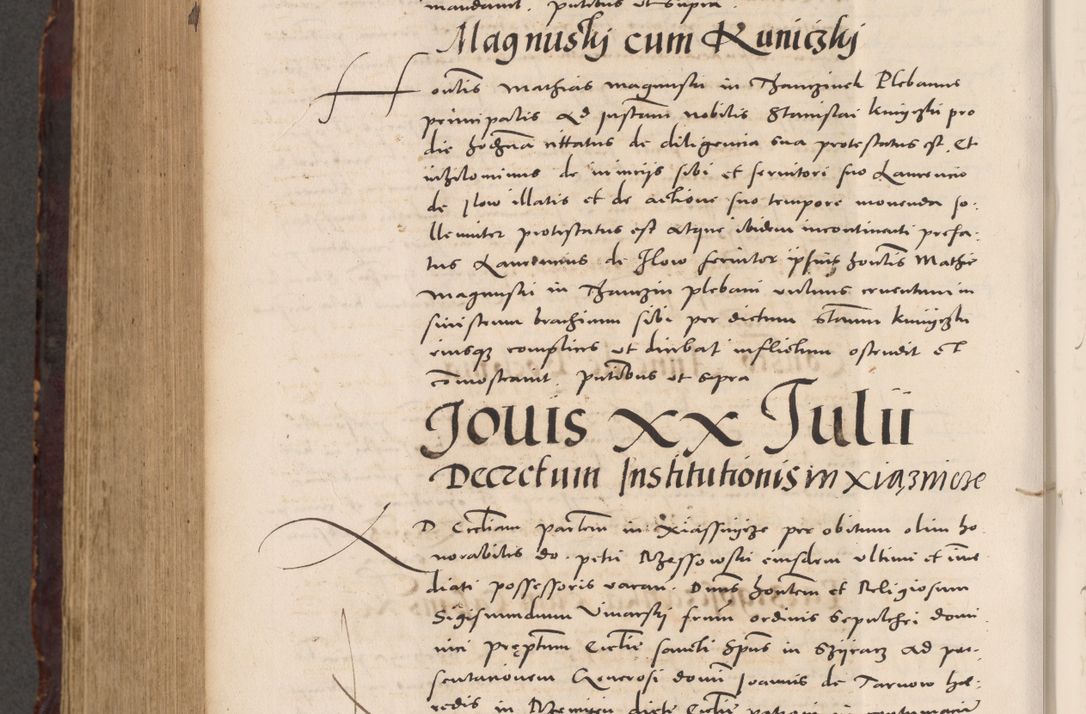 mandavit. putibus ut supra.
Magnuskj cum Kuniczkj
Hontis Mathias magnuski in Thanczinek Plebanus
principalis Ad Instam nobilis Stanislai kniyczki pro
die hodierna cittatus de diligencia sua protestatus est. Et
nihilominus de iniurijs sibi et seruitori suo Laurencio
de Ilow illatis et de actione suo tempore mouenda so-
llemniter protestatus est Atque ibidem incontinenti prefa-
tus Laurencius de Ilow seruitor ipsius hontis Mathie
magnuski in Thanczin plebani vulnus cruentum in
sinistrum brachium sibi per dictum Stanm kniyczki
eiusq complices ut dicebat inflictum ostendit et
comostravit. putibus ut supra
Jouis XX Julii
Decretum Institutionis in Xiaznicze
AD Eccliam parlem in Xiassnycze per obitum olim ho-
norabilis do. petri Rzessowski eiusdem vltimi et imme-
diati possessoris vacan. Dnus hontem et Religiosum
Sigismundum Vinarskj frum ordinis sepulchri domi-
nici preptum Ecclie sancti Spus in Szyracz Ad pre-
sentationem Generosi domi Joannis de Tarnow hae-
redis in Rzemien dicte Ecclie patroni in